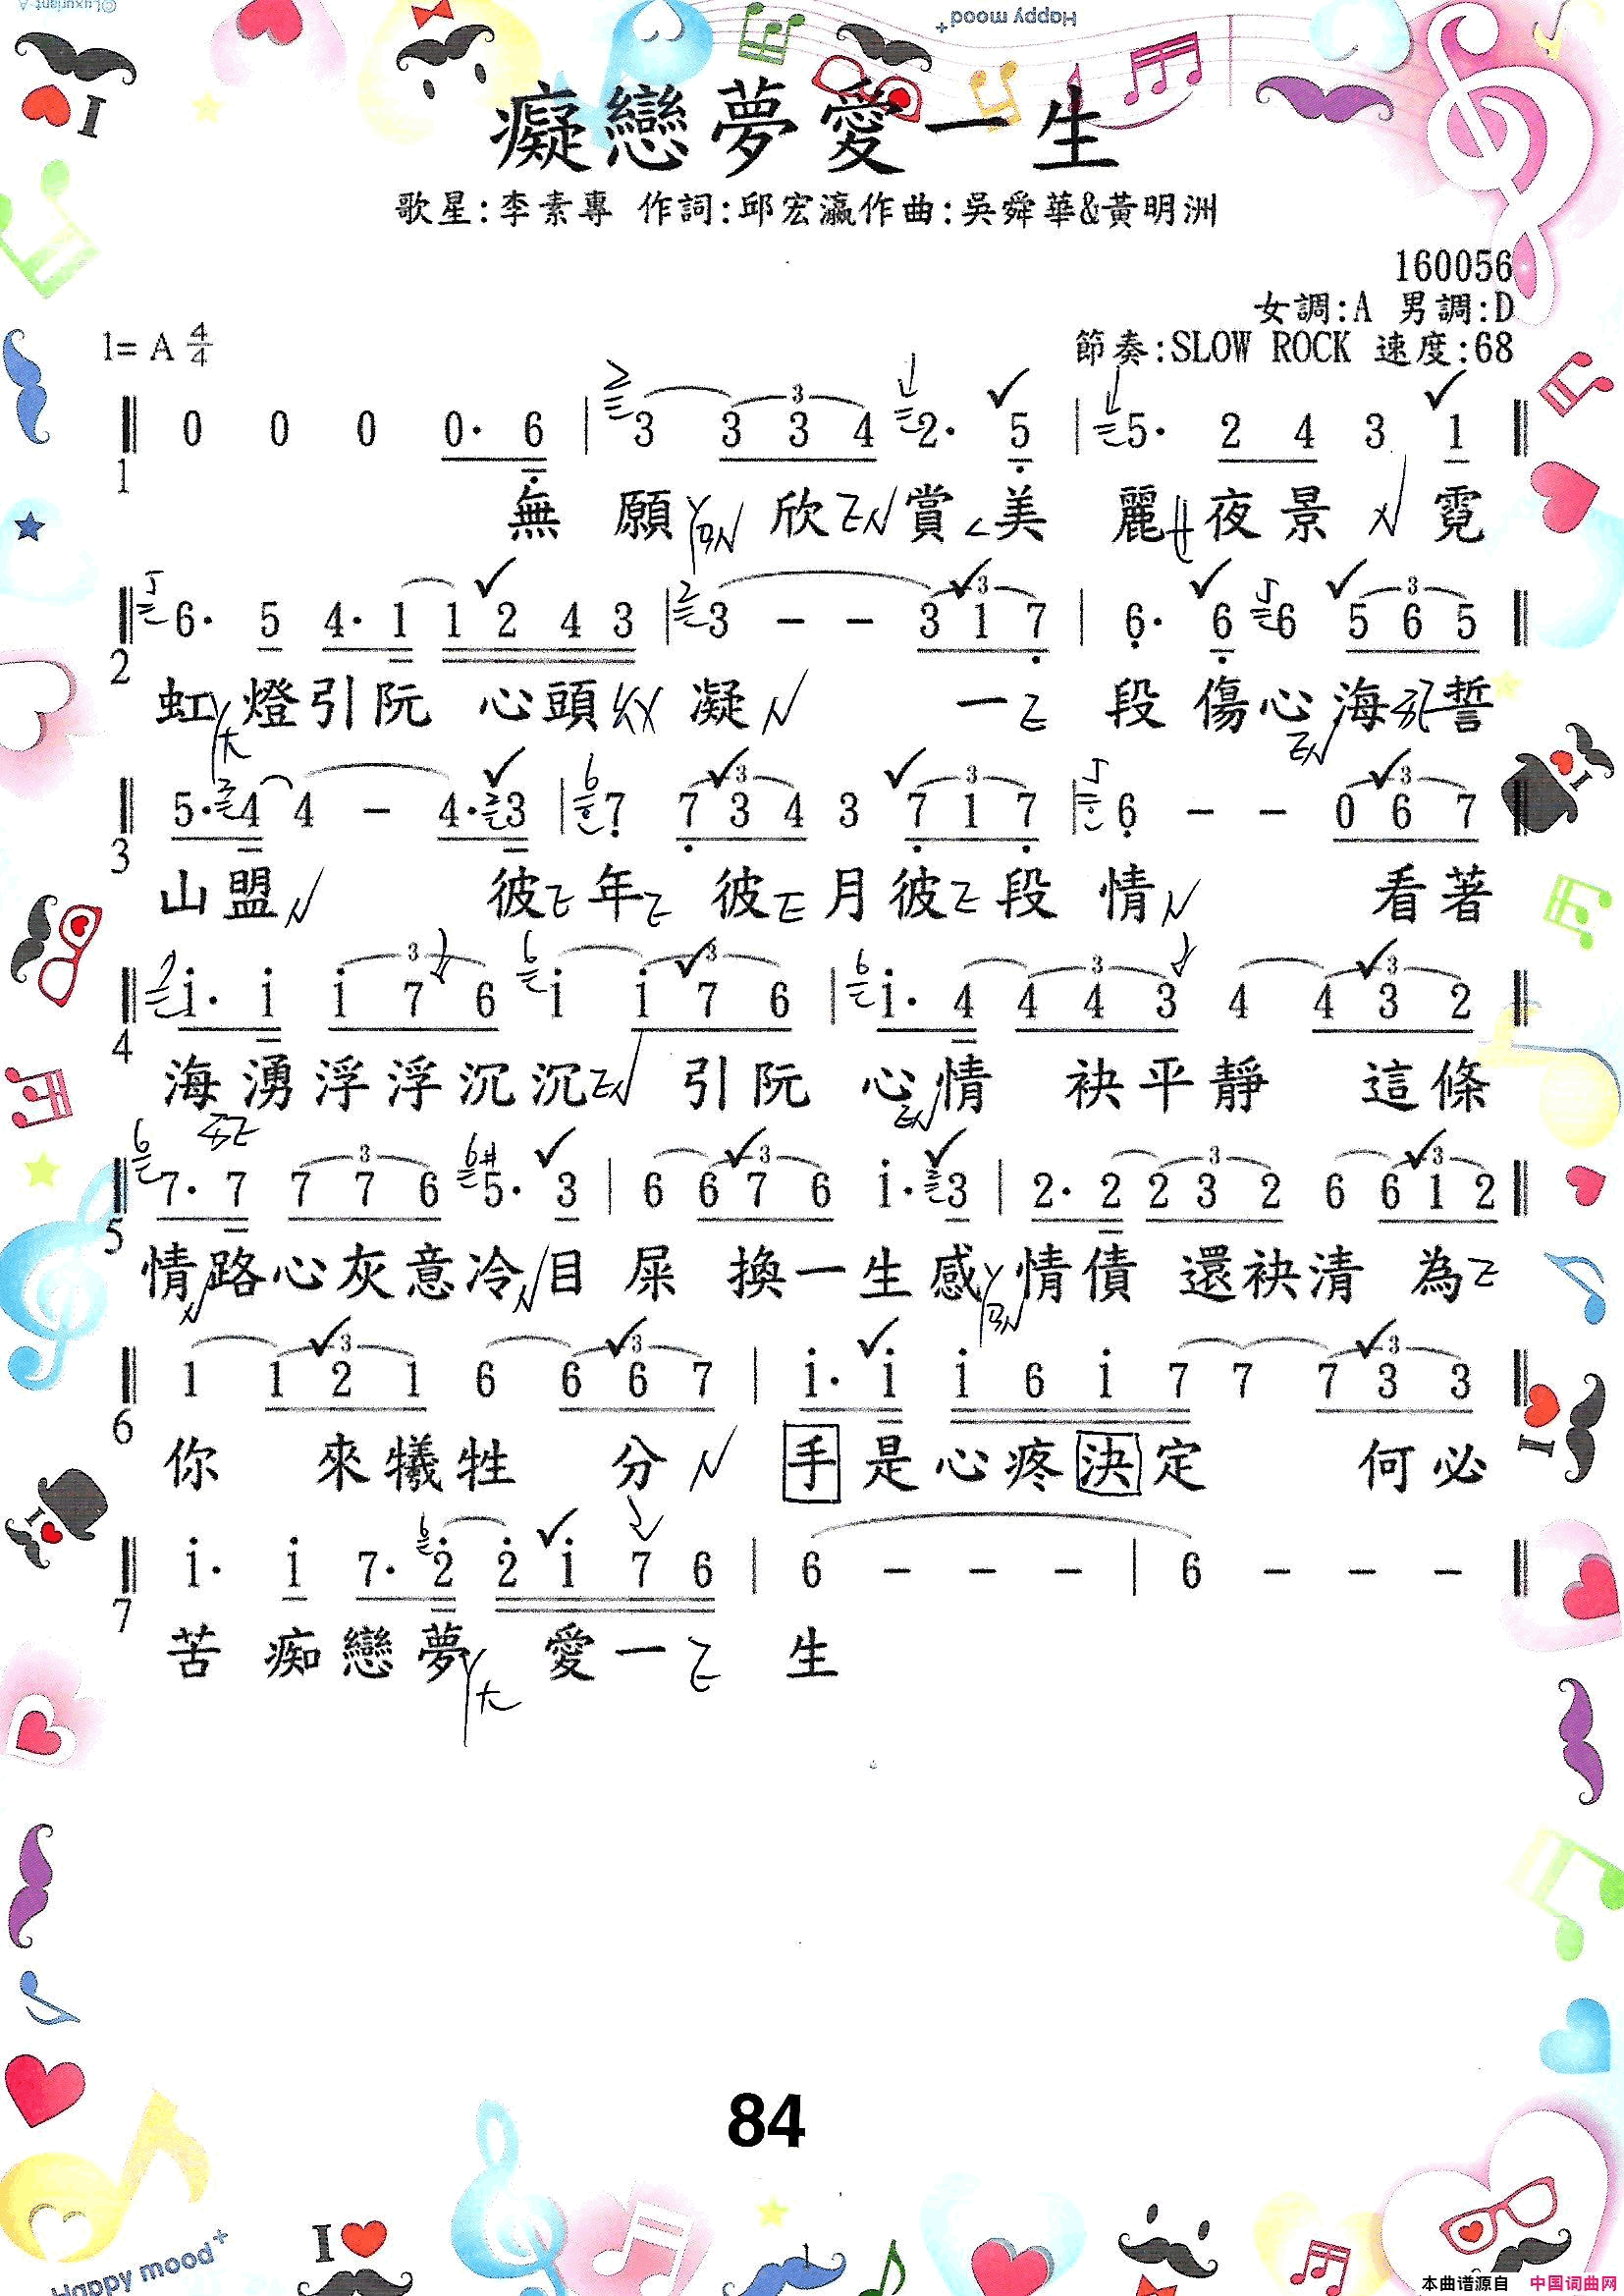 ©Luxuriant-A
Happy mood+
癡戀夢愛一生
歌星:李素專 作詞:邱宏瀛作曲:吳舜華&黃明洲
160056
女調:A 男調:D
1= A 4/4 節奏:SLOW ROCK 速度:68
0 0 0 0· 6 | 3 3 3 4 2· 5 | 5· 2 4 3 1
1 無 願 欣 賞 美 麗 夜 景 霓
6· 5 4· 1 1 2 4 3 | 3 - - 3 1 7 | 6· 6 6 5 6 5
2 虹 燈 引 阮 心 頭 凝 一 段 傷 心 海 誓
5· 4 4 - 4· 3 | 7 7 3 4 3 7 1 7 | 6 - - 0 6 7
3 山 盟 彼 年 彼 月 彼 段 情 看 著
i· i i 7 6 i i 7 6 | i· 4 4 4 3 4 4 3 2
4 海 湧 浮 浮 沉 沉 引 阮 心 情 袂 平 靜 這 條
7· 7 7 7 6 5· 3 | 6 6 7 6 i· 3 | 2· 2 2 3 2 6 6 1 2
5 情 路 心 灰 意 冷 目 屎 換 一 生 感 情 債 還 袂 清 為
1 1 2 1 6 6 6 7 | i· i i 6 i 7 7 7 3 3
6 你 來 犧 牲 分 手 是 心 疼 決 定 何 必
i· i 7· 2 2 i 7 6 | 6 - - - | 6 - - -
7 苦 痴 戀 夢 愛 一 生
84
Happy mood+
I
1
本曲谱源自 中国词曲网